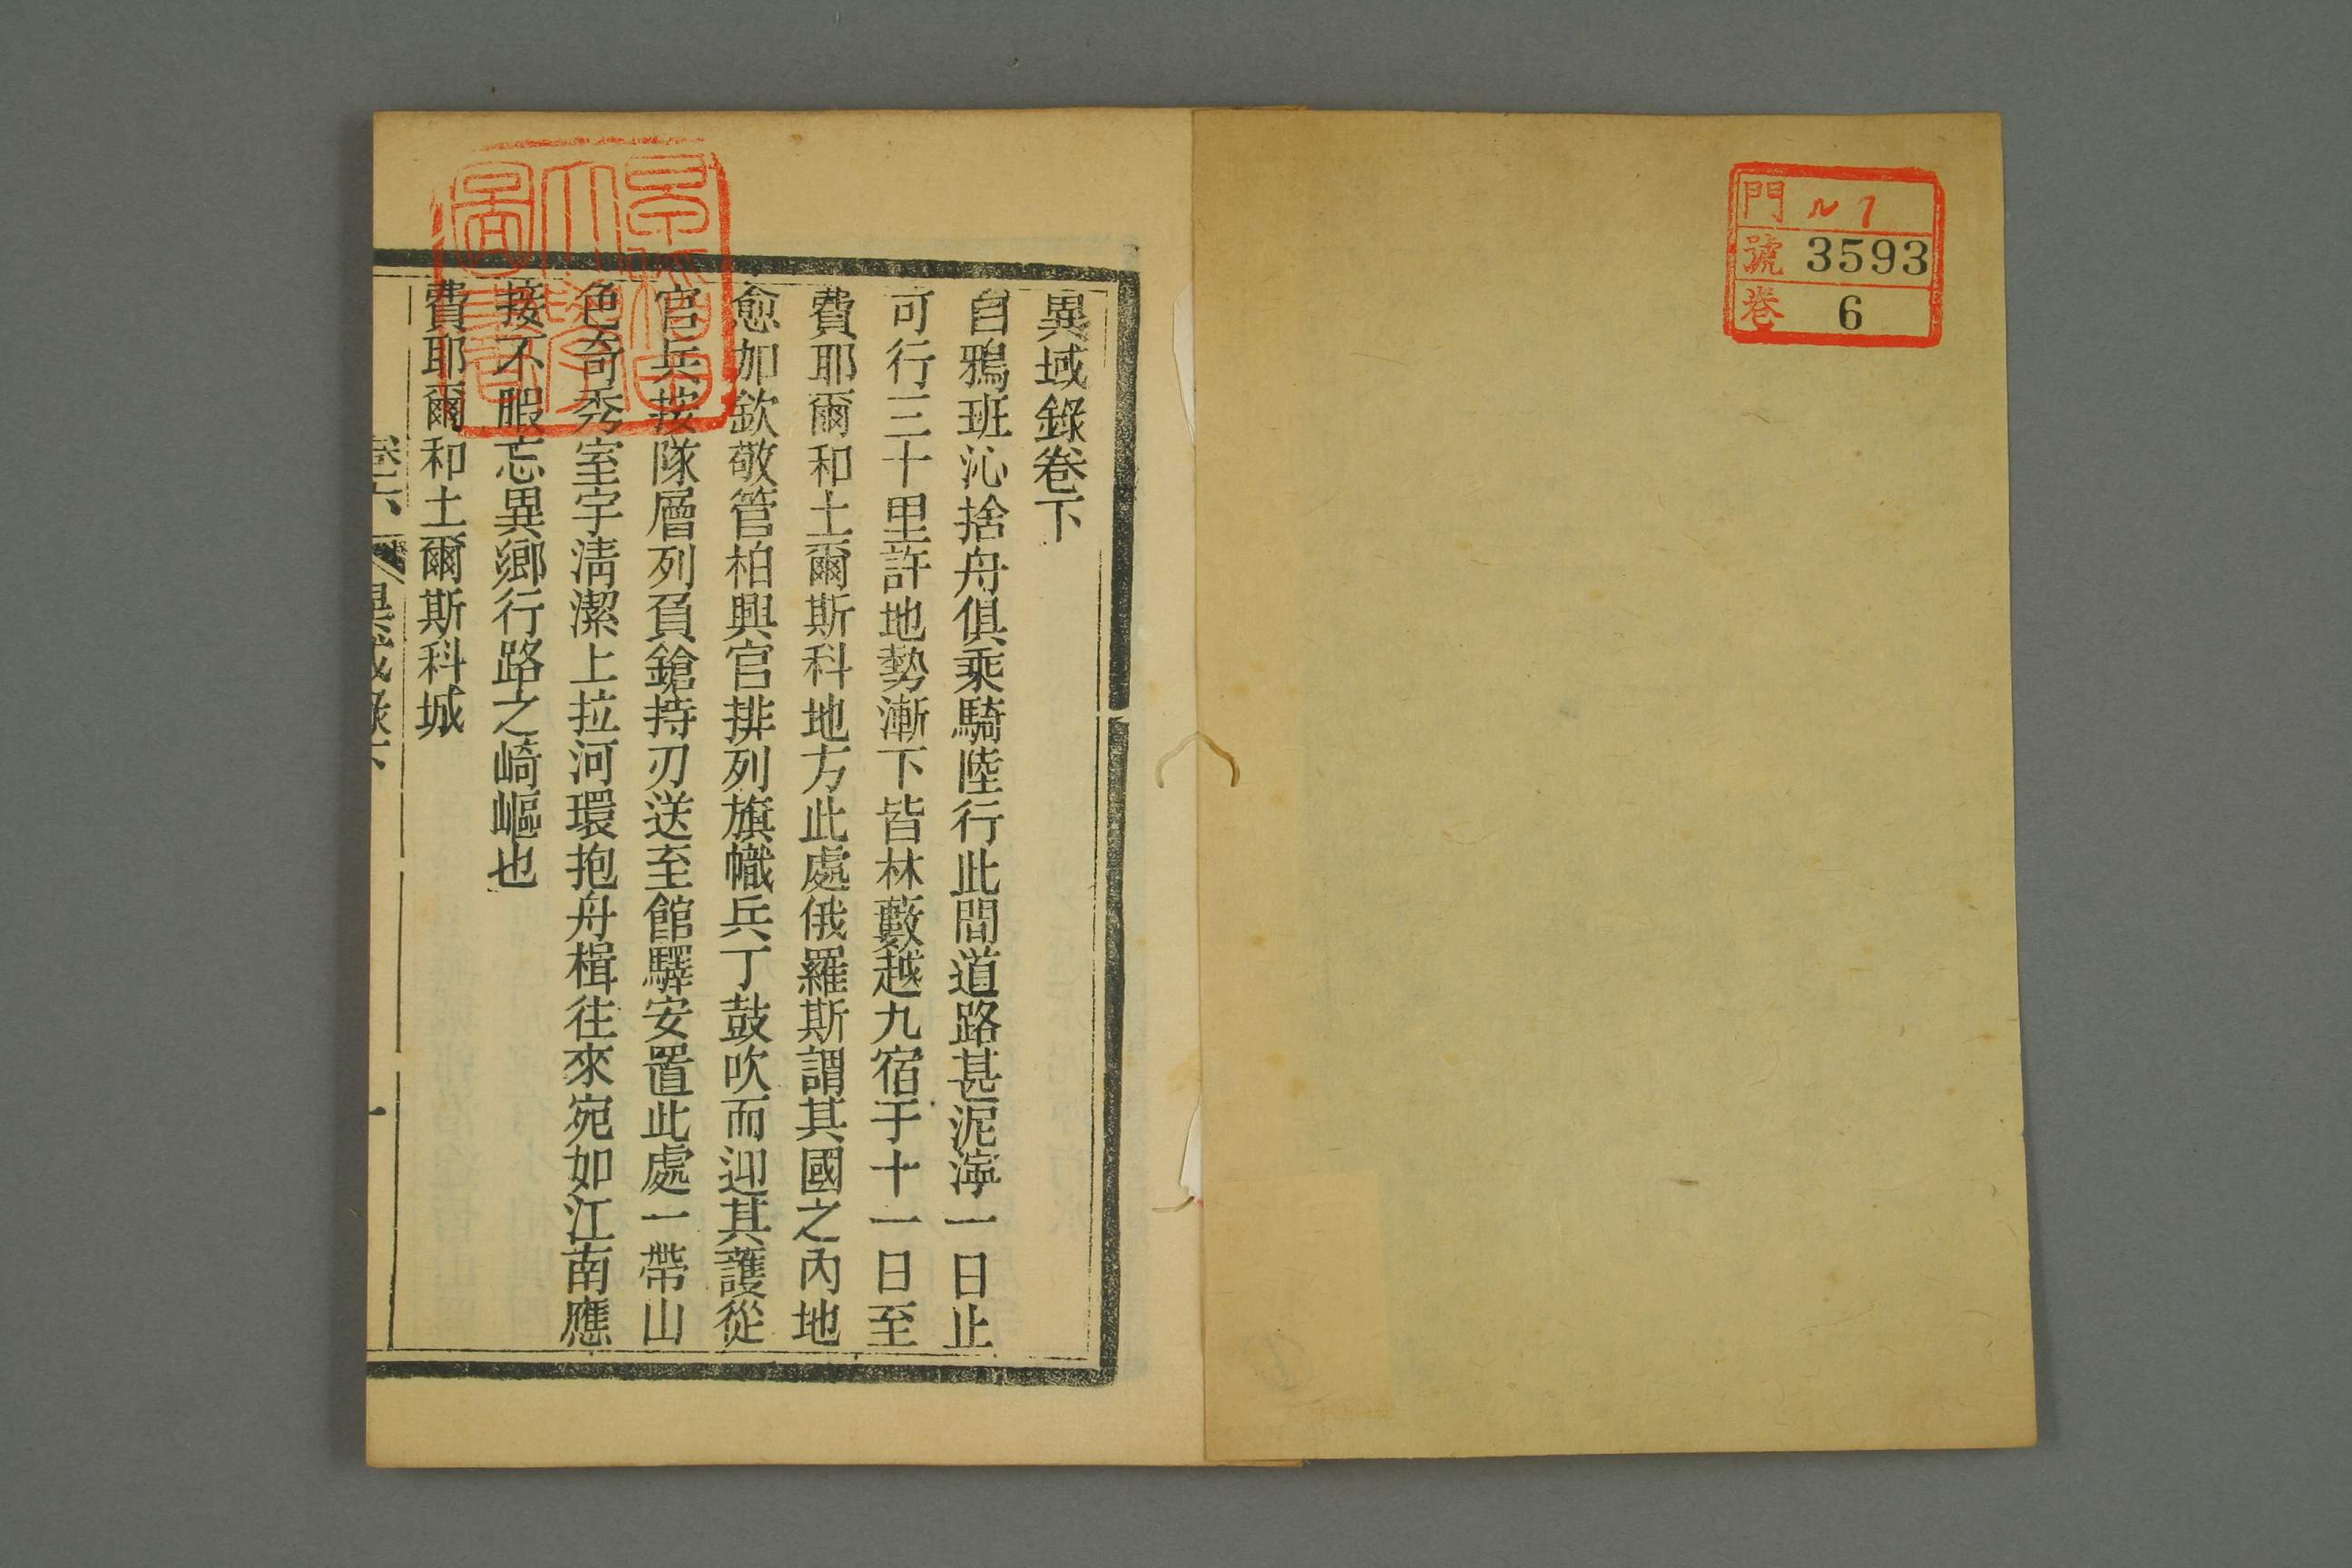 門 ル 1
號 3593
卷 6
異域錄卷下
自鴉班沁捨舟俱乘騎陸行此間道路甚泥濘一日止
可行三十里許地勢漸下皆林藪越九宿于十一日至
費耶爾和土爾斯科地方此處俄羅斯謂其國之內地
愈加欽敬管柏興官排列旗幟兵丁鼓吹而迎其護從
官兵按隊層列負鎗持刃送至館驛安置此處一帶山
色奇秀室宇清潔上拉河環抱舟楫往來宛如江南應
接不暇忘異鄉行路之崎嶇也
費耶爾和土爾斯科城
卷六 異域錄下 一